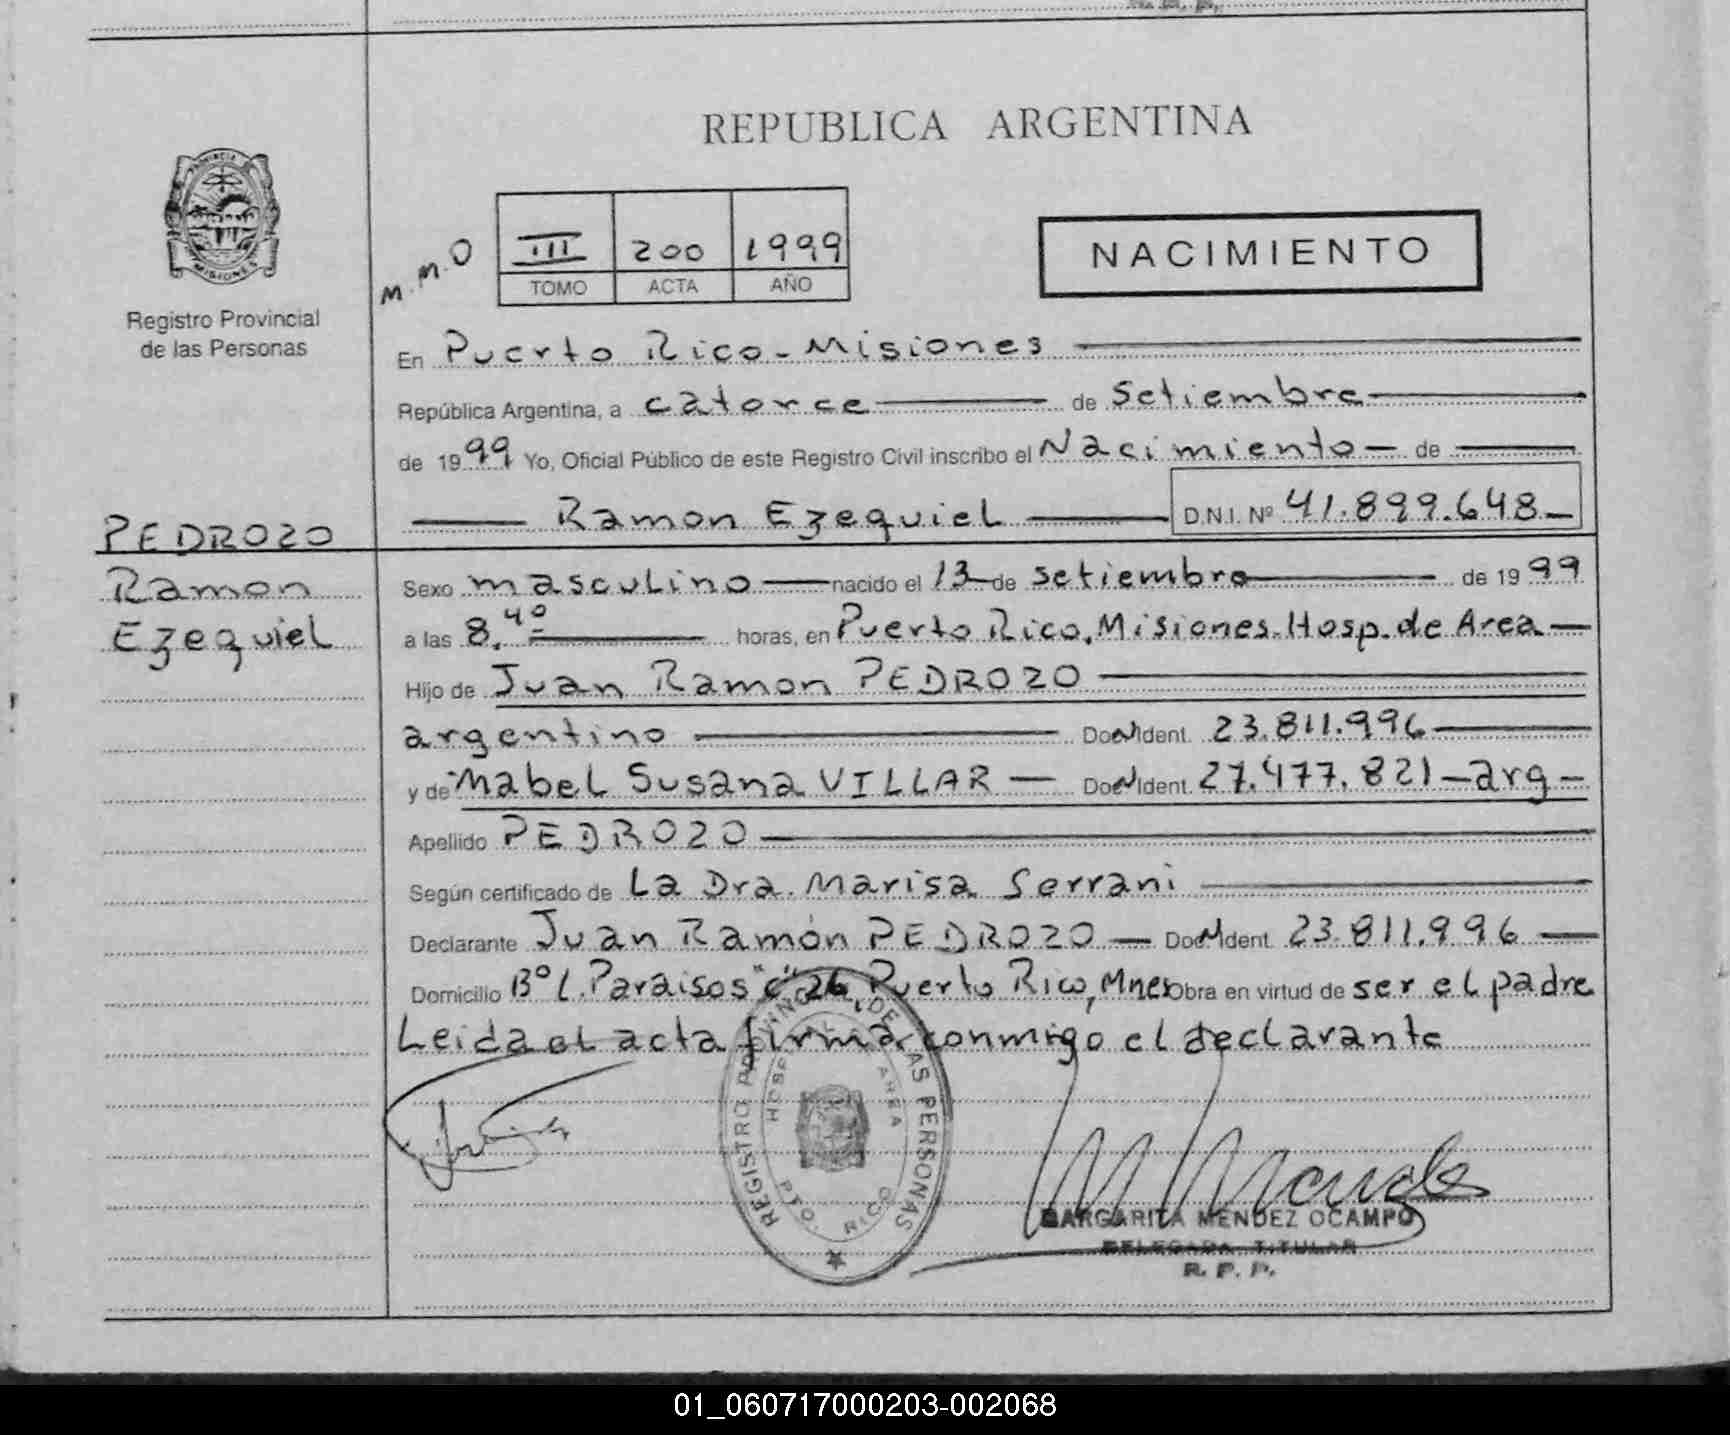 REPUBLICA ARGENTINA
PROVINCIA
MISIONES
Registro Provincial
de las Personas
M.M.O
III 200 1999
TOMO ACTA AÑO
NACIMIENTO
En Puerto Rico - Misiones
República Argentina, a catorce de setiembre
de 1999 Yo, Oficial Público de este Registro Civil inscribo el Nacimiento de
Ramon Ezequiel D.N.I. Nº 41.899.648
PEDROZO
Ramon
Ezequiel
Sexo masculino nacido el 13 de setiembre de 1999
a las 8.40 horas, en Puerto Rico, Misiones. Hosp. de Area
Hijo de Juan Ramon PEDROZO
argentino Doc. Ident. 23.811.996
y de Mabel Susana VILLAR Doc. Ident. 27.477.821 - arg
Apellido PEDROZO
Según certificado de La Dra. Marisa Serrani
Declarante Juan Ramón PEDROZO Doc. Ident. 23.811.996
Domicilio Bº L. Paraisos "C" 26, Puerto Rico, Mnes Obra en virtud de ser el padre
Leida el acta firma conmigo el declarante
REGISTRO PROVINCIAL DE LAS PERSONAS
HOSPITAL AREA
PTO. RICO
MARGARITA MENDEZ OCAMPO
DELEGADA TITULAR
R. P. P.
01_060717000203-002068